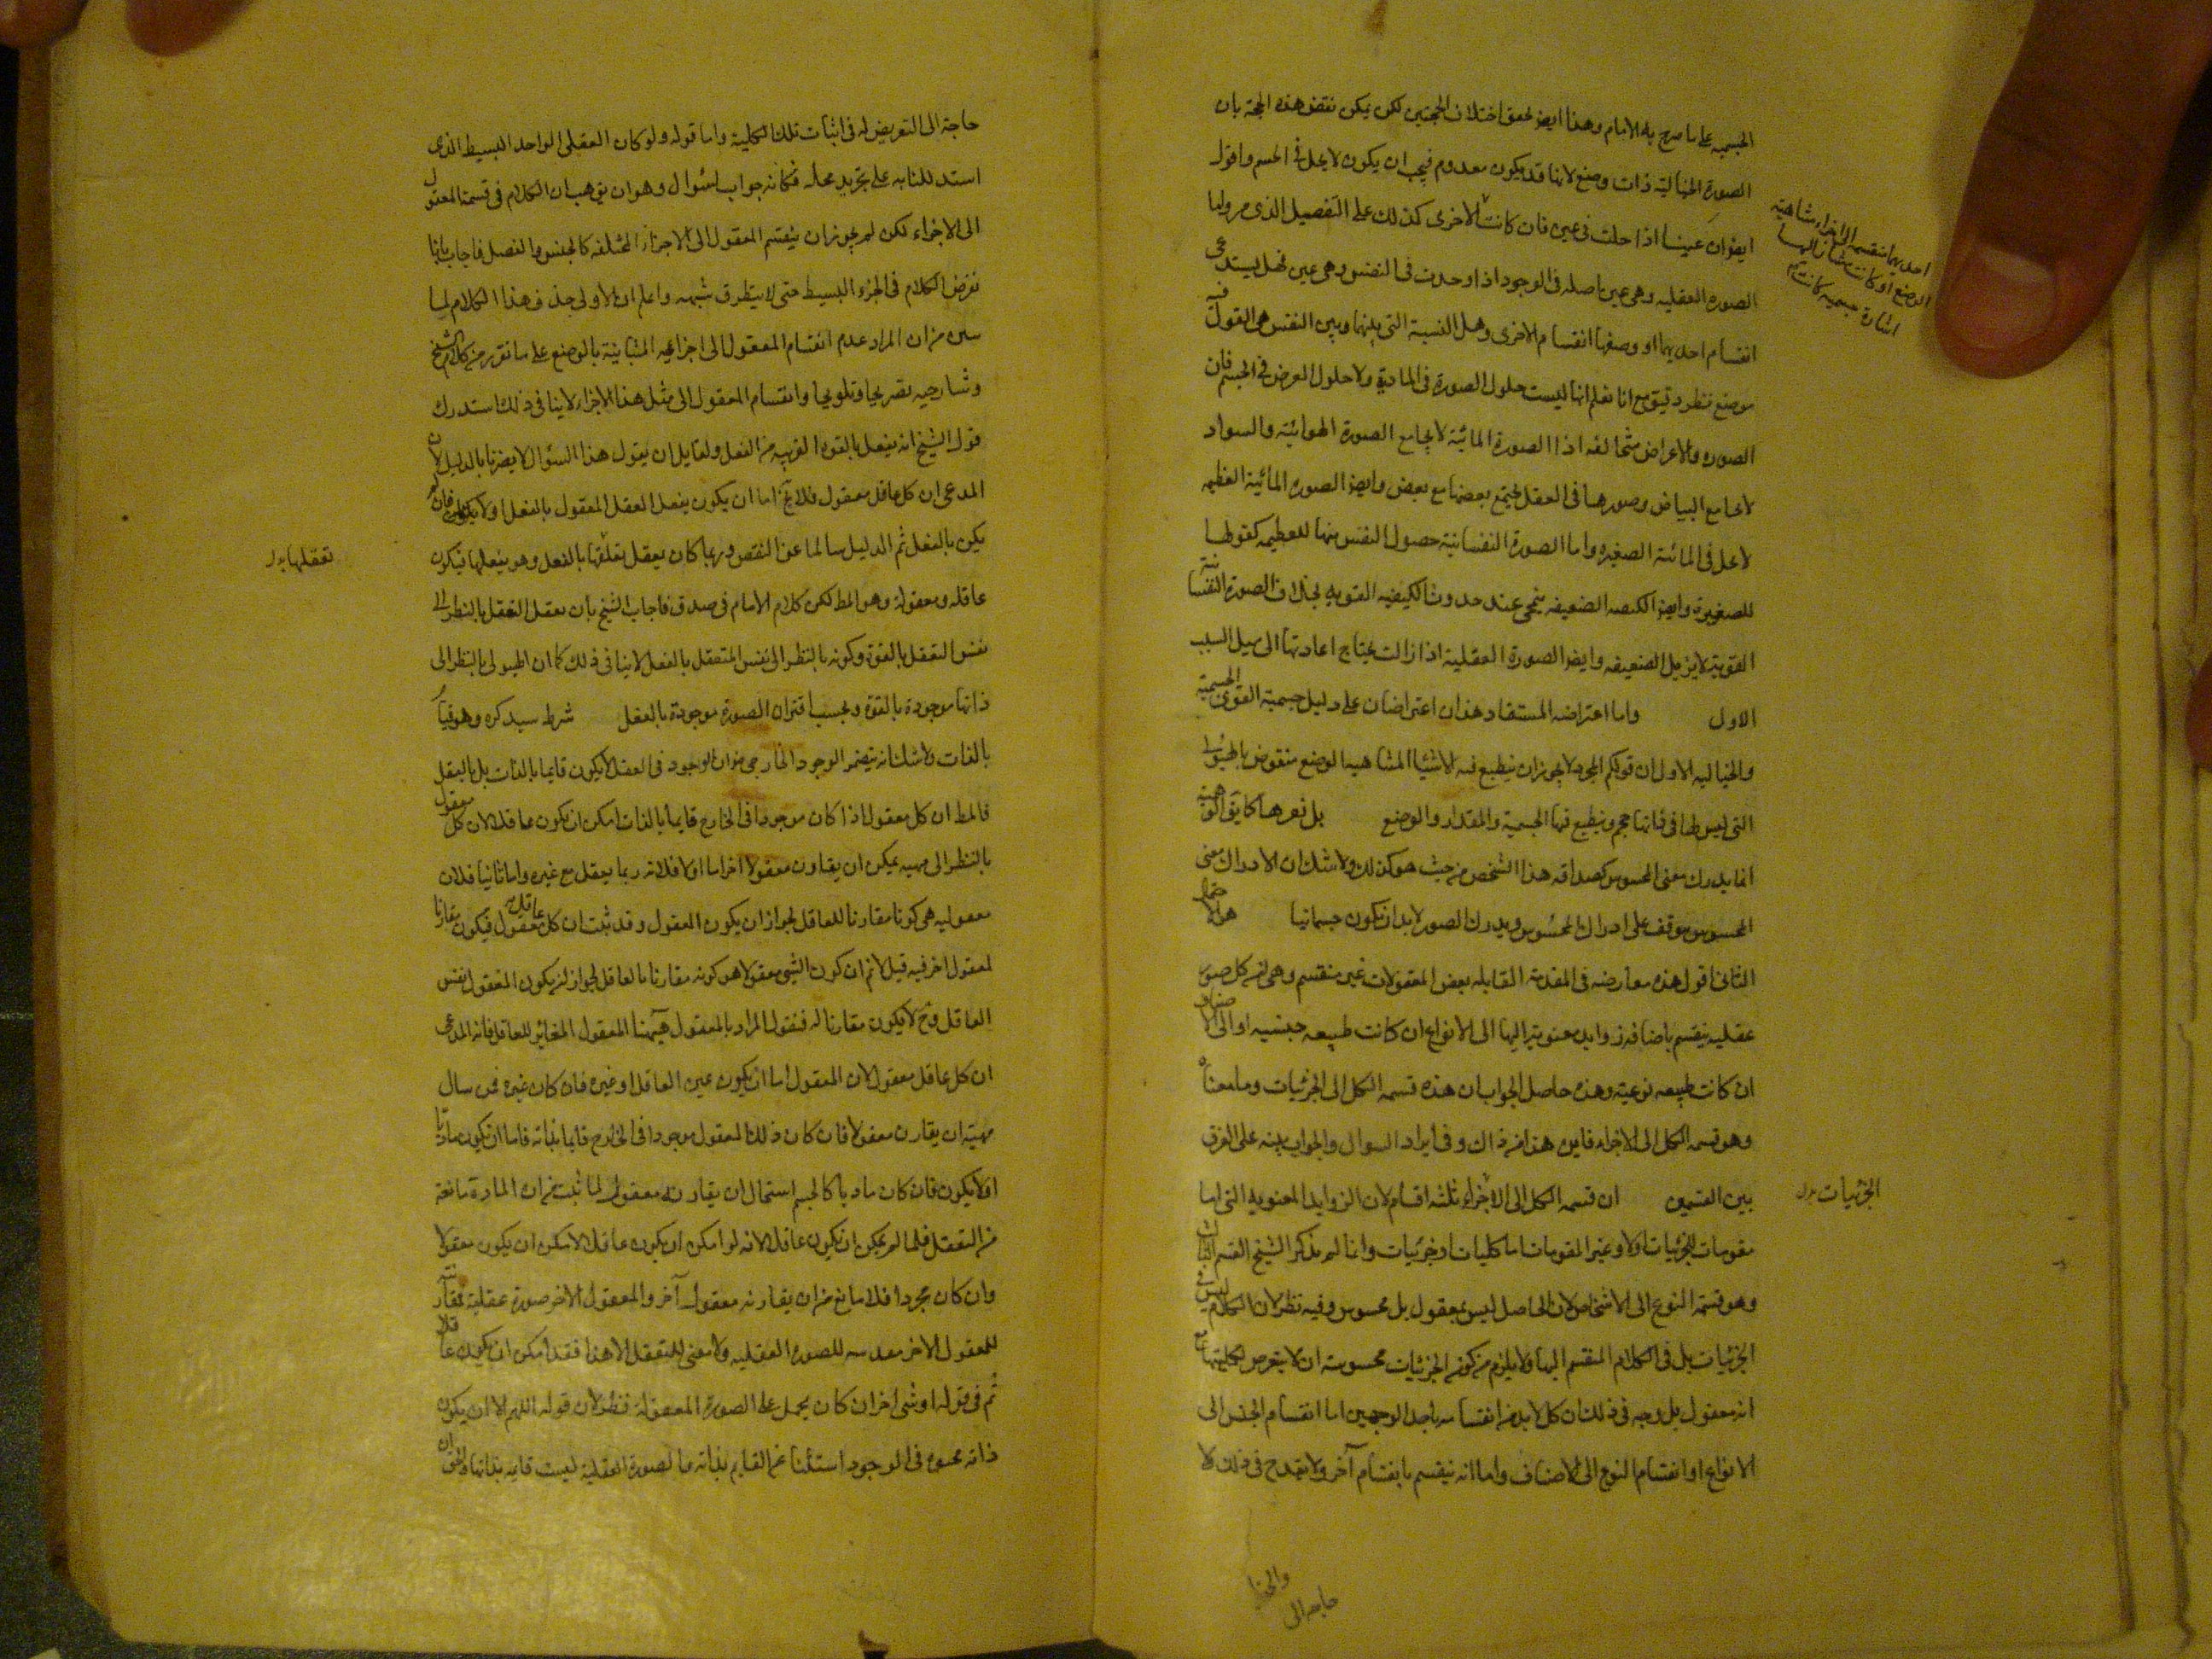 الجسميه على ما صرح به الامام وهذا ايضا يحقق اختلاف الحجتين لكن يمكن نقض هذه الحجة بان
الصورة الخيالية ذات وضع لانها قد يكون معدوم فيجب ان يكون لا يحل فى الجسم واقول
ايضا ان عينا اذا حلت فى عين فان كانت الاخرى كذلك على التفصيل الذى مر ولها
الصورة العقليه وهى عين باصله فى الوجود اذا وجدت فى النفس وهى عين فهل يستدعى
انقسام احديهما او وصفها انقسام الاخرى وهل النسبة التى بينها وبين النفس هى القول فيه
موضع نظر دقيق مع انا نعلم انها ليست حلول الصورة فى المادة ولا حلول العرض فى الجسم فان
الصوره والاعراض متخالفه اذ الصورة المائية لا يجامع الصورة الهوائية والسواد
لا يجامع البياض وصورهما فى العقل يجتمع بعضها مع بعض وايضا الصوره المائية العظيمه
لا يحل فى المائية الصغيره واما الصورة النفسانية حصول النفس منها للعظيمه كقولها
للصغيرة وايضا الكيفيه الضعيفه ينمحى عند حدوث الكيفيه القويه بخلاف الصورة النفسانية
القوية لا يزيل الضعيفه وايضا الصورة العقلية اذا زالت يحتاج اعادتها الى سبيل السبب
الاول واما اعتراضه المستفاد هذان اعتراضان على دليل جسمية القوى الجسمية
والخياليه الاول ان قولكم المجرد لا يجوز ان ينطبع فيه الاشياء المتناهيه الوضع منقوض بالهيولى
التى ليس لها فى ذاتها حجم وينطبع فيها الجسمية والمقدار والوضع بل نعرها كما يق الوهمية
انما يدرك معنى المحسوس كصداقة هذا الشخص من حيث هو كذلك ولا شك ان الادراك معنى
المحسوس موقف على ادراك المحسوس ويدرك الصور لابد ان يكون جسمانيا هو الاحتمال
الثانى اقول هذه معارضه فى المقدمة القايله بعض المعقولات غير منقسم وهى ان كل صور
عقليه ينقسم باضافة زوايد معنوية اليها الى الانواع ان كانت طبيعه جنسيه او الى الاصناف
ان كانت طبيعه نوعية وهذه حاصل الجواب ان هذه قسمه الكل الى الجزئيات وما معناه
وهو قسمه الكل الى الاجزاء فاين هذا من ذاك وفى ايراد السوال والجواب بينه على الفرق
بين القسمين ان قسمه الكل الى الاجزاء ثلثه اقسام لان الزوايد المعنويه التى اما
مقومات للجزئيات اولا وغير المقومات اما كليات او جزئيات وانما لم يذكر الشيخ القسم الثالث
وهو قسمة النوع الى الاشخاص لان الحاصل ليس بمعقول بل محسوس وفيه نظر لان الكلام ليس فى
الجزئيات بل فى الكلام المنقسم اليها ولا يلزم من كون الجزئيات محسوسة ان لا يتعرض لكليتها
انه معقول بل وجه فى ذلك ان كل لابد من انقسامه باحد الوجهين اما انقسام الجنس الى
الانواع او انقسام النوع الى الاصناف واما انه ينقسم بانقسام آخر ولا يقدح فى ذلك لا
احديهما منقسمه الى اجزاء متشابهة
الوضع او كانت مشار اليها
اشارة جسميه كانت
الجزئيات بدل
حاجه الى
حاجة الى التعريض له فى اثبات تلك الكلية واما قوله ولو كان العقلى الواحد البسيط الذى
استدللنا به على تجريد محله فكانه جواب لسؤال وهو ان يق هب ان الكلام فى قسمة المعقول
الى الاجزاء لكن لم يجوز ان ينقسم المعقول الى الاجزاء المختلفه كالجنس والفصل فاجاب بانا
نفرض الكلام فى الجزء البسيط حتى لا يتطرق شبهه واعلم ان الاولى حذف هذا الكلام لما
سبق من ان المراد عدم انقسام المعقول الى اجزائه المتباينة بالوضع على ما تقرر من كلام الشيخ
وشارحيه تصريحا وتلويحا وانقسام المعقول الى مثل هذا الاجزاء لا ينافى ذلك استدرك
قول الشيخ انه يفعل بالقوه القريبه من الفعل ولقايل ان يقول هذا السؤال لا يضرنا بالدليل لان
المدعى ان كل عاقل معقول فلا يخ اما ان يكون يفعل العقل المعقول بالفعل او لا يكون فان لم
يكن بالفعل ثم الدليل سالما عن النقص وربما كان يعقل تعلقها بالفعل وهو يفعلها فيكون
عاقله ومعقولة وهو المط لكن كلام الامام فى صدق فاجاب الشيخ بان تعقل التعقل بالنظر الى
نفس التعقل بالقوة وكونه بالنظر الى نفس المتعقل بالفعل لا ينافى ذلك كما ان الهيولى بالنظر الى
ذاتها موجودة بالقوة وبحسب اقتران الصورة موجودة بالفعل شرط سيذكره وهو قيامه
بالذات ولا شك انه يتضمن الوجود الخارجى فان الوجود فى العقل لا يكون قايما بالذات بل بالعقل
فالمط ان كل معقول اذا كان موجودا فى الخارج قايما بالذات امكن ان يكون عاقلا لان كل معقول
بالنظر الى مهيته يمكن ان يقارن معقولا اخر اما اولا فلانه ربما يعقل مع غيره واما ثانيا فلان
معقوليه هى كونها مقارنا للعاقل لجواز ان يكون المعقول وقد ثبت ان كل عاقل معقول فيكون مقارنا
لمعقول اخر فيه قيل لا نم ان كون الشئ معقولا هو كونه مقارنا بالعاقل لجواز ان يكون المعقول نفس
العاقل وح لا يكون مقارنا له فنقول المراد بالمعقول هيهنا المعقول المغاير للعاقل فانه المدعى
ان كل عاقل معقول لان المعقول اما ان يكون عين العاقل او غيره فان كان غيره فمن شان
مهيته ان يقارن معقولا فان كان ذلك المعقول موجودا فى الخارج قايما بذاته فاما ان يكون ماديا
او لا يكون فان كان ماديا كالجسم استحال ان يقارنه معقول لما ثبت من ان المادة مانعة
من التعقل فلما لم يمكن ان يكون عاقلا لانه لو امكن ان يكون عاقلا لامكن ان يكون معقولا
وان كان مجردا فلا مانع من ان يقارنه معقول آخر والمعقول الاخر صورة عقلية فمقارنته
للمعقول الاخر للصورة العقليه ولا معنى للتعقل الا هذا فقد امكن ان يكون عاقلا
ثم فى قوله او شئ اخر ان كان يحمل على الصورة المعقولة فنظر لان قوله اللهم الا ان يكون
ذاته فى الوجود استثنا عن القايم بذاته والصورة العقلية ليست قايمه بذاتها
تعقلها بدل